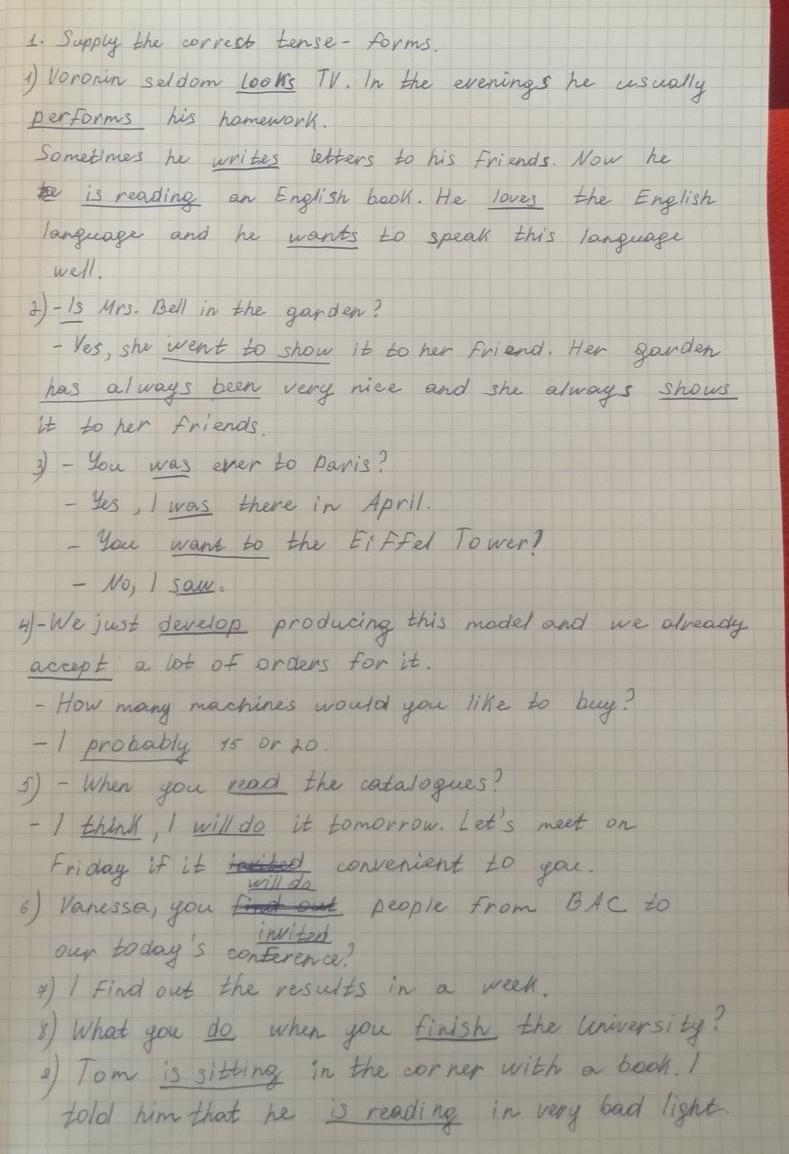 1. Supply the correct tense-forms.
1) Voronin seldom looks TV. In the evenings he usually
performs his homework.
Sometimes he writes letters to his friends. Now he
is reading an English book. He loves the English
language and he wants to speak this language
well.
2) - Is Mrs. Bell in the garden?
- Yes, she went to show it to her friend. Her garden
has always been very nice and she always shows
it to her friends.
3) - You was ever to Paris?
- Yes, I was there in April.
- You want to the Eiffel Tower?
- No, I saw.
4) - We just develop producing this model and we already
accept a lot of orders for it.
- How many machines would you like to buy?
- I probably 15 or 20.
5) - When you read the catalogues?
- I think, I will do it tomorrow. Let's meet on
Friday if it invited convenient to you.
will do
6) Vanessa, you find out people from BAC to
invited
our today's conference?
7) I find out the results in a week.
8) What you do when you finish the University?
9) Tom is sitting in the corner with a book. I
told him that he is reading in very bad light.